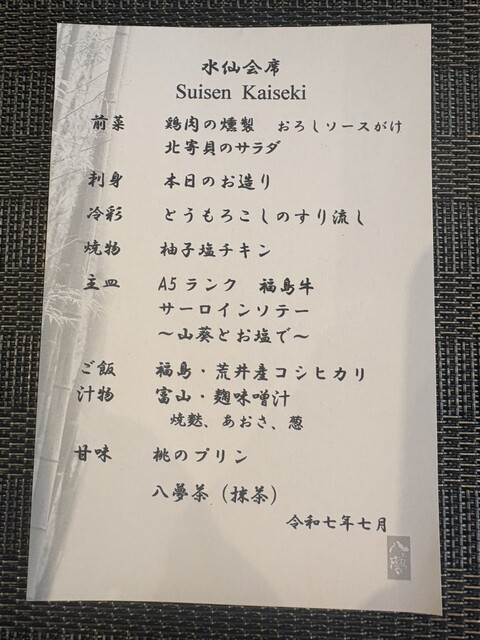 水仙会席
Suisen Kaiseki
前菜 鶏肉の燻製 おろしソースがけ
北寄貝のサラダ
刺身 本日のお造り
冷彩 とうもろこしのすり流し
焼物 柚子塩チキン
主皿 A5ランク 福島牛
サーロインソテー
～山葵とお塩で～
ご飯 福島・荒井産コシヒカリ
汁物 富山・麹味噌汁
焼麩、あおさ、葱
甘味 桃のプリン
八夢茶（抹茶）
令和七年七月
八夢